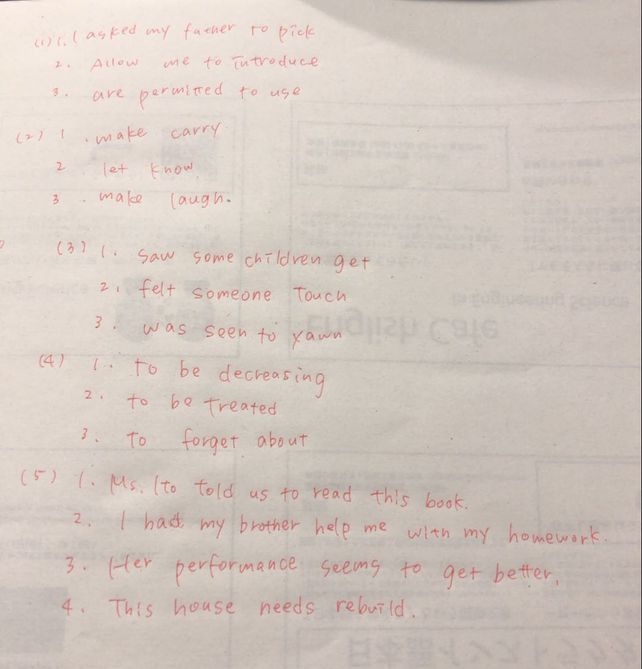 (1) 1. I asked my father to pick
2. Allow me to introduce
3. are permitted to use
(2) 1. make carry
2 let know.
3. make laugh.
(3) 1. saw some children get
2. felt someone touch
3. was seen to yawn
(4) 1. to be decreasing
2. to be treated
3. To forget about
(5) 1. Ms. Ito told us to read this book.
2. I had my brother help me with my homework.
3. Her performance seems to get better.
4. This house needs rebuild.
English Cafe
in Engineering Science